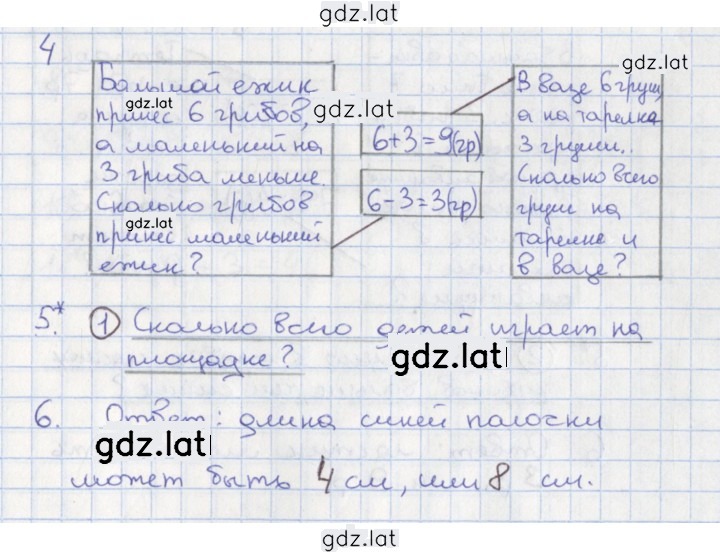 gdz.lat
4
Большой ежик
gdz.lat
принес 6 грибов,
а маленький на
3 гриба меньше.
Сколько грибов
gdz.lat
принес маленький
ежик?
gdz.lat
6+3=9(гр)
6-3=3(гр)
gdz.lat
В вазе 6 груш,
а на тарелке
3 груши.
Сколько всего
груш на
тарелке и
в вазе?
5.* 1 Сколько всего детей играет на
площадке?
gdz.lat
6. Ответ: длина синей палочки
gdz.lat
может быть 4 см, или 8 см.
gdz.lat